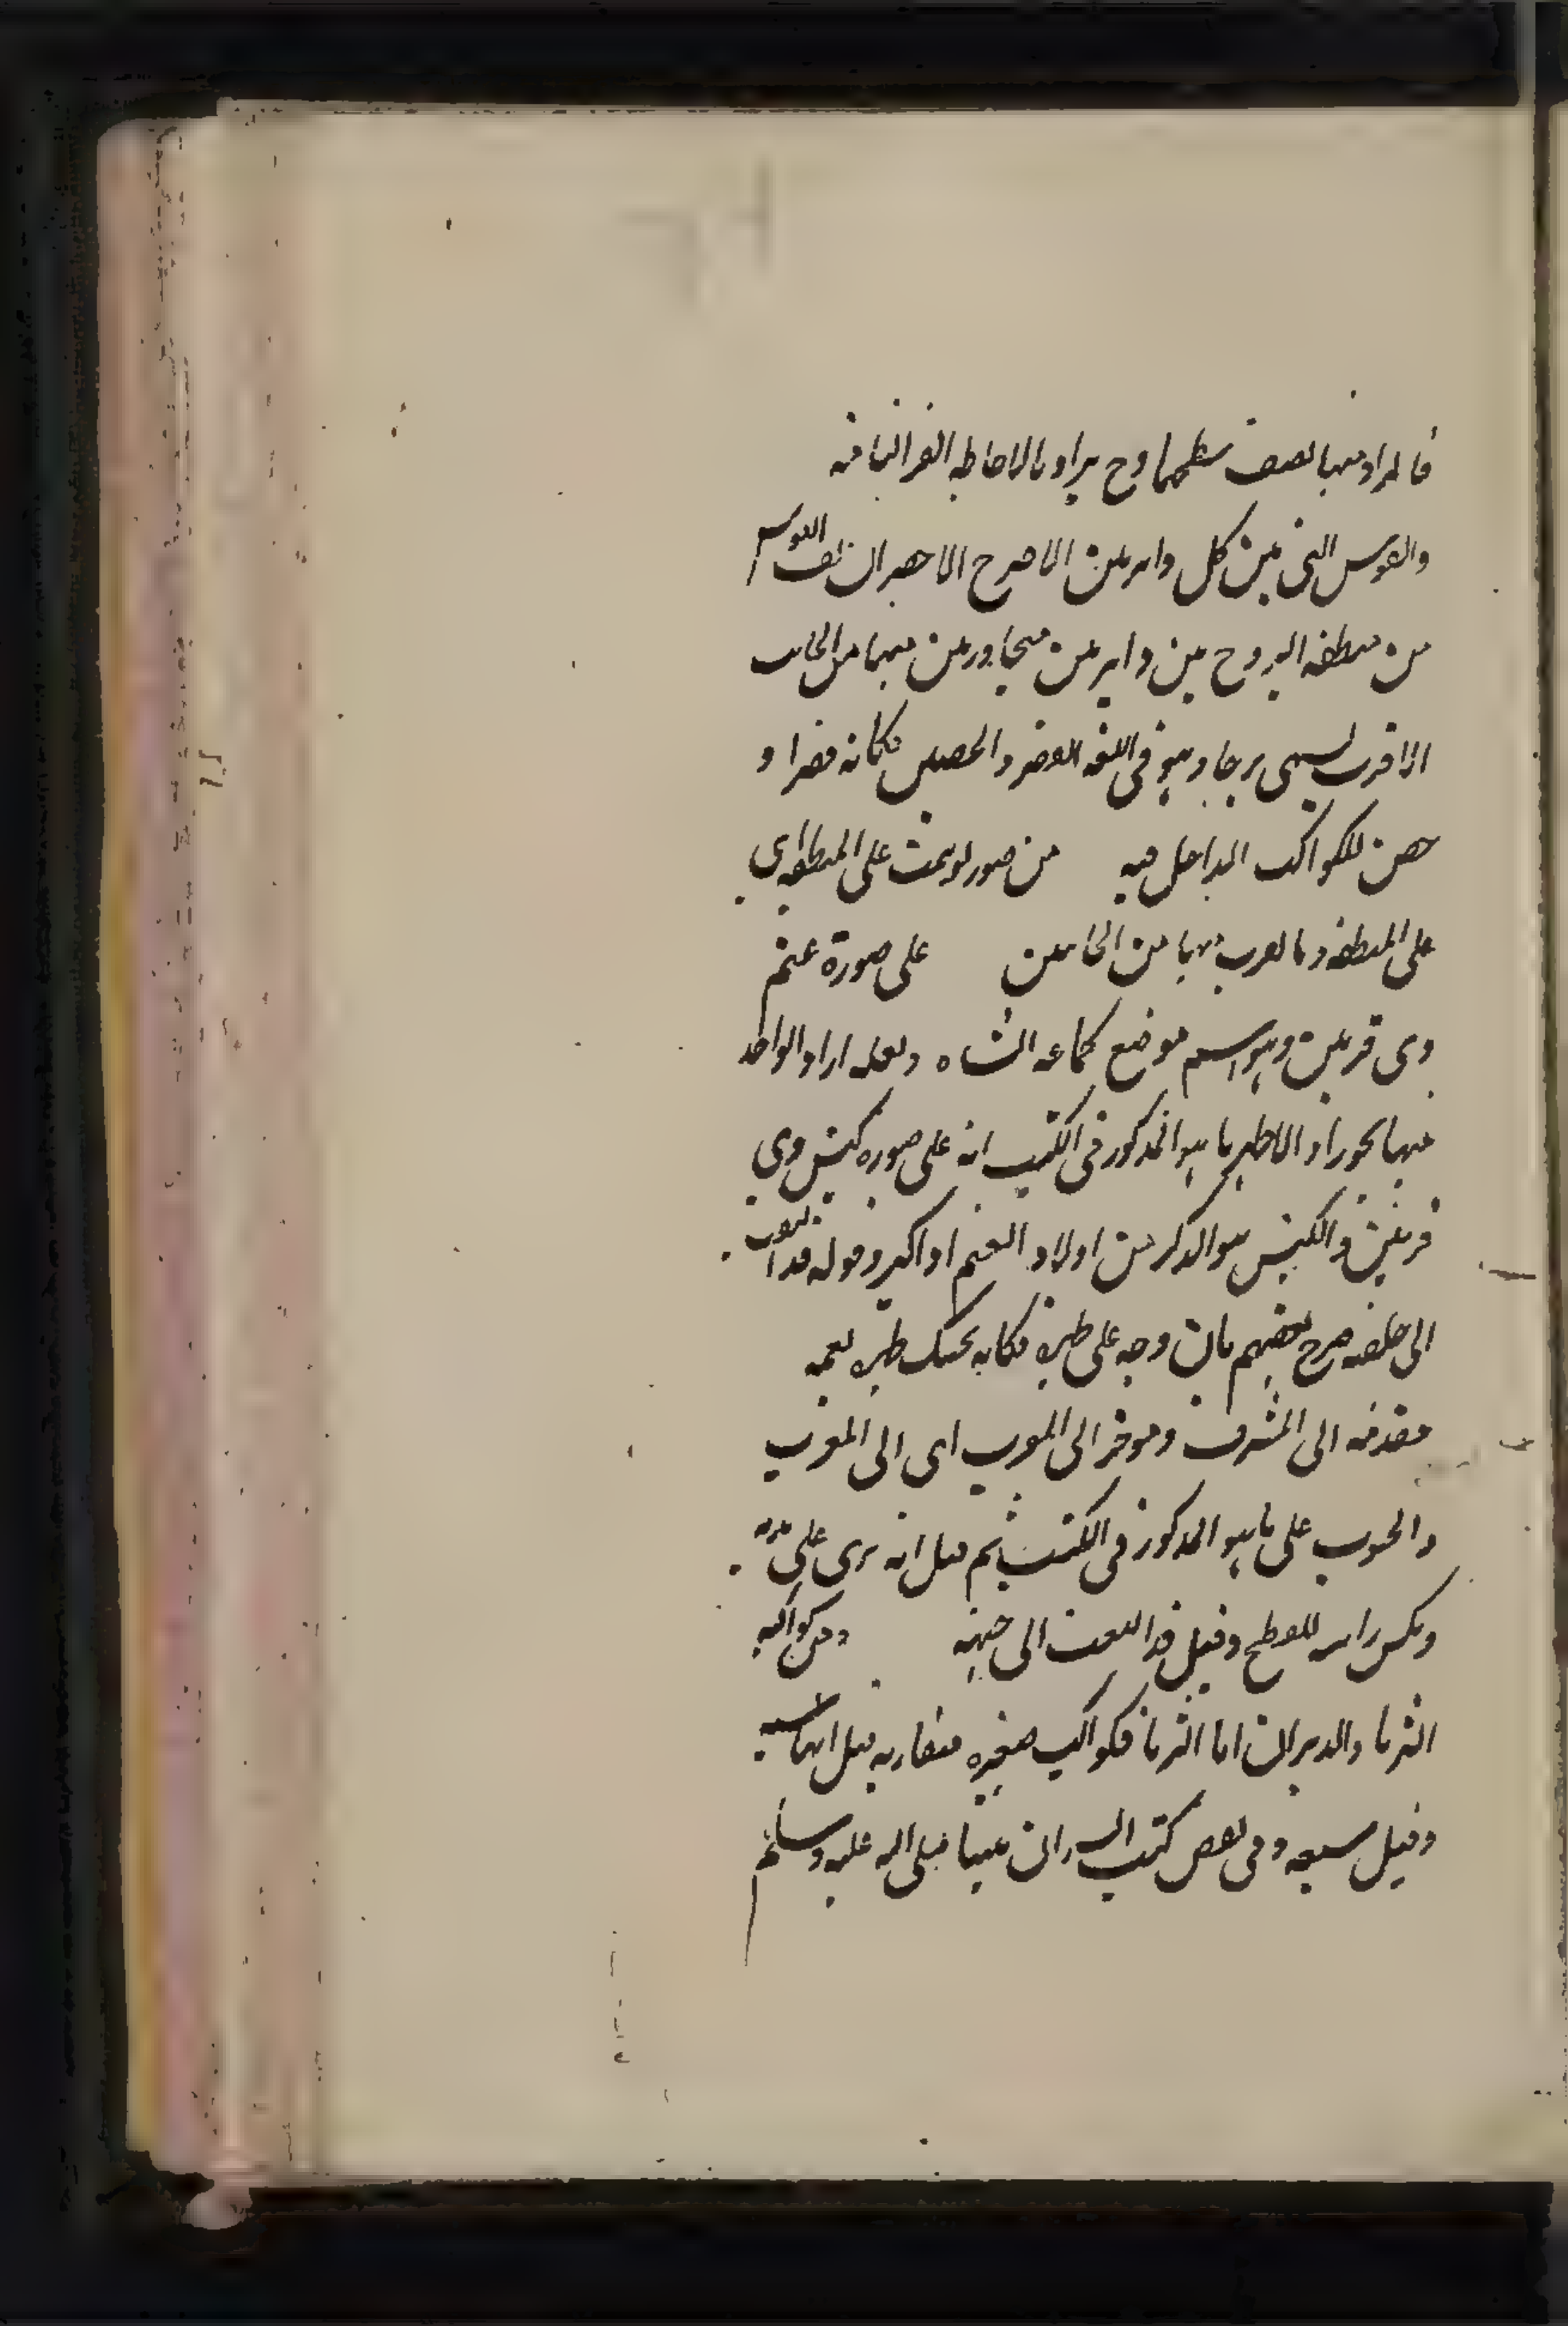 فالمراد منها نصف سطحها وح يراد بالاحاطه الغير التامه
والقوس التى بين كل دايرتين الاصرح الاخصر ان يقال القوس
من منطقه البروج بين دايرتين متجاورتين منهما من الجانب
الاقرب يسمى برجا وهو فى اللغه القصر والحصن فكانه قصر او
حصن للكواكب الداخل فيه من صور توهمت على المنطقه اى
على المنطقه وما يقرب منها من الجانبين على صورة غنم
ذى قرنين وهو اسم موضع لجماعه الشاه ولعله اراد الواحد
منها تجوزا والاظهر ما هو المذكور فى الكتب انه على صوره كبش ذى
قرنين والكبش هو الذكر من اولاد الغنم او اكبر وقوله قد التفت
الى خلفه صرح بعضهم بان وجهه على ظهره فكانه يحك ظهره بفمه
مقدمه الى المشرق وموخره الى المغرب اى الى المغرب
والجنوب على ما هو المذكور فى الكتب ثم قيل انه يرى على
ونكس راسه للنطح وقيل قد التفت الى جنبه ومن كواكبه
الثريا والدبران اما الثريا فكواكب صغيره متقاربه قيل انها سته
وقيل سبعه وفى بعض كتب السير ان نبينا صلى الله عليه وسلم